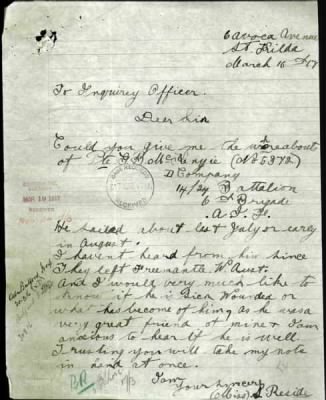 6 Avoca Avenue
St Kilda
March 16th 17
To Inquirey Officer.
Dear Sir
Could you give me the whereabout
of Pte McKenzie (No 5372)
D Company
14/24 Battalion
6th Brigade
A.I.F.
He sailed about last July or early
in August.
I havent heard from him since
They left Freemantle W. Aust.
And I would very much like to
know if he is Sick Wounded or
what has become of him, as he was a
very great friend of mine & I am
anxious to hear if he is well
Trusting you will take my note
in hand at once.
I am
Your Sincerely
(Miss) Reside
RECEIVED
MAR 19 1917
RED CROSS
RECEIVED